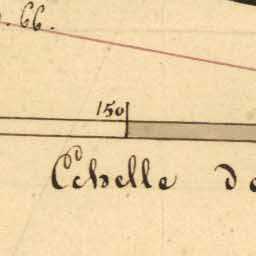 66.
150
Echelle de